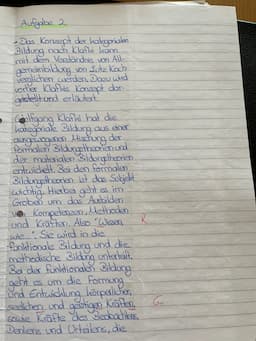 Aufgabe 2
- Das Konzept der kategorialen
Bildung nach Klafki kann
mit dem Verständnis von All-
gemeinbildung von Lutz Koch
verglichen werden. Dazu wird
vorher Klafkis Konzept dar-
gestellt und erläutert.
Wolfgang Klafki hat die
kategoriale Bildung aus einer
ausgewogenen Mischung der
formalen Bildungstheorien und
der materialen Bildungstheorien
entwickelt. Bei den formalen
Bildungstheorien ist das Subjekt
wichtig. Hierbei geht es im
Groben um das Ausbilden
von Kompetenzen, Methoden
und Kräften. Also "Wissen,
wie...". Sie wird in die
funktionale Bildung und die
methodische Bildung unterteilt.
R.
Bei der funktionalen Bildung
geht es um die Formung
und Entwicklung körperlicher,
seelischen und geistigen Kräften,
G.
sowie Kräfte des Beobachtens,
Denkens und Urteilens, die